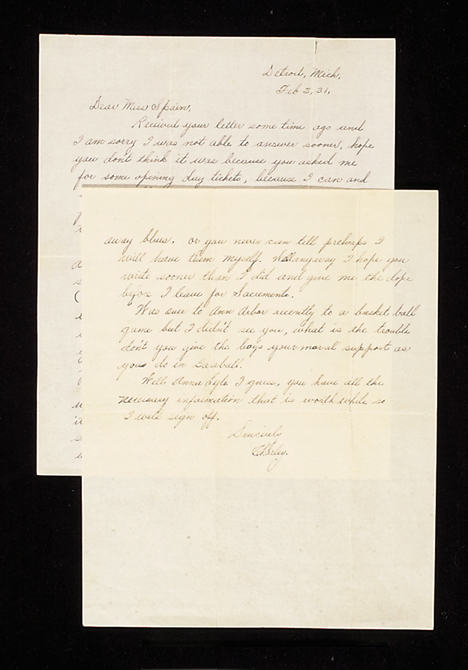 Detroit, Mich.
Feb 3, 31.
Dear Miss Spain,
Received your letter some time ago and
I am sorry I was not able to answer sooner, hope
you don't think it was because you asked me
for some opening day tickets, because I can and
away blues. or you never can till prehaps I
will have them myself. anyway I hope you
write sooner than I did and give me the dope
before I leave for Sacramento.
Was out to Ann Arbor recently to a basket ball
game but I didn't see you, what is the trouble
don't you give the boys your moral support as
you do in Baseball.
Well I guess, you have all the
necessary information that is worth while so
I will sign off.
Sincerely